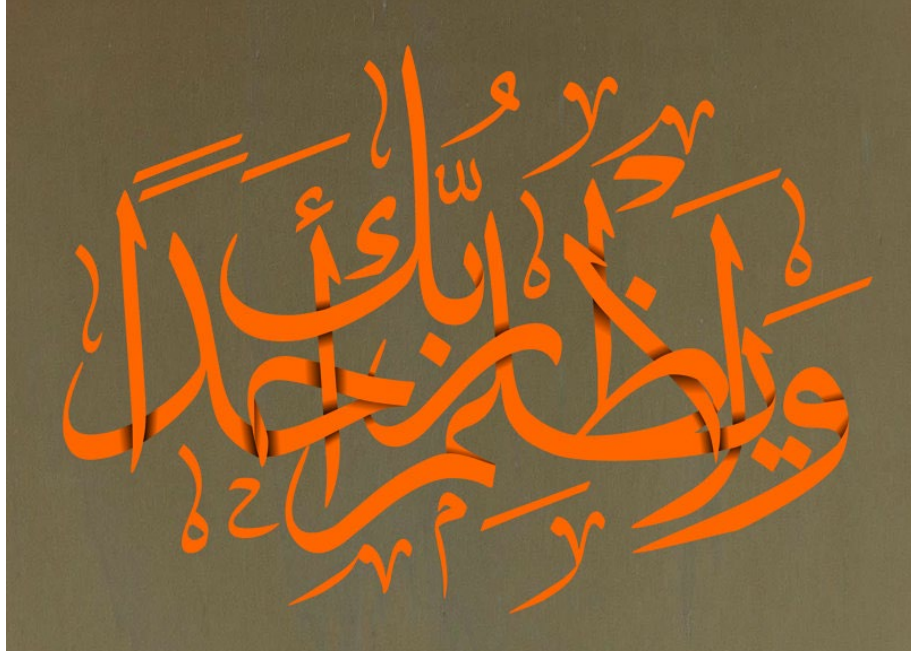 وَلَا يَظْلِمُ رَبُّكَ أَحَدًا